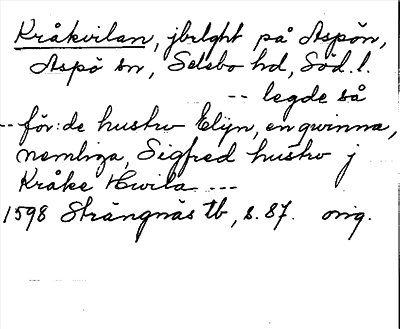 Kråkvilan, jbrlght på Aspön,
Aspö sn, Selebo hd, Söd. l.
-- legde så
-- för:de hustrv Elijn, en qwinna,
nembπga, Sigfred hustrv j
Kråke Hwila ---
1598 Strängnäs tb, s. 87. orig.